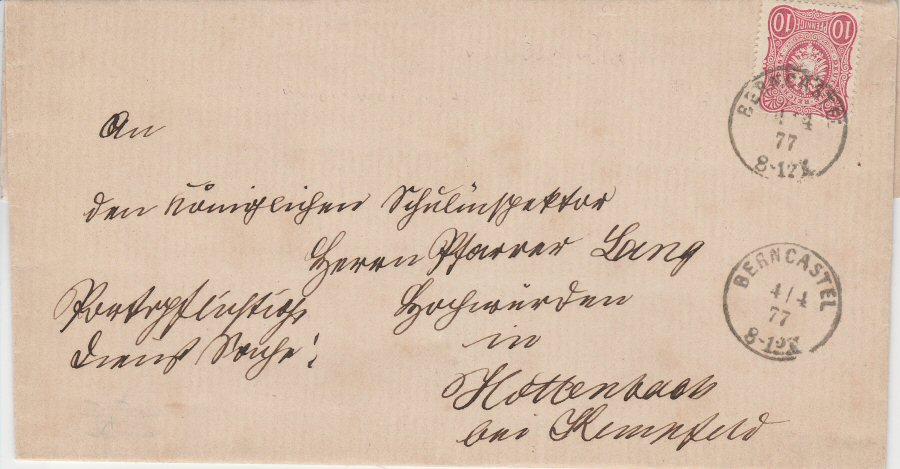 10 PFENNIGE 10
BERNCASTEL
4/4
77
8-12V
An
den Königlichen Schulinspektor
Herrn Pfarrer Lang
Hochwürden
in
Hottenbach
bei Rhaunen
Portopflichtige
Dienst Sache!
BERNCASTEL
4/4
77
8-12V